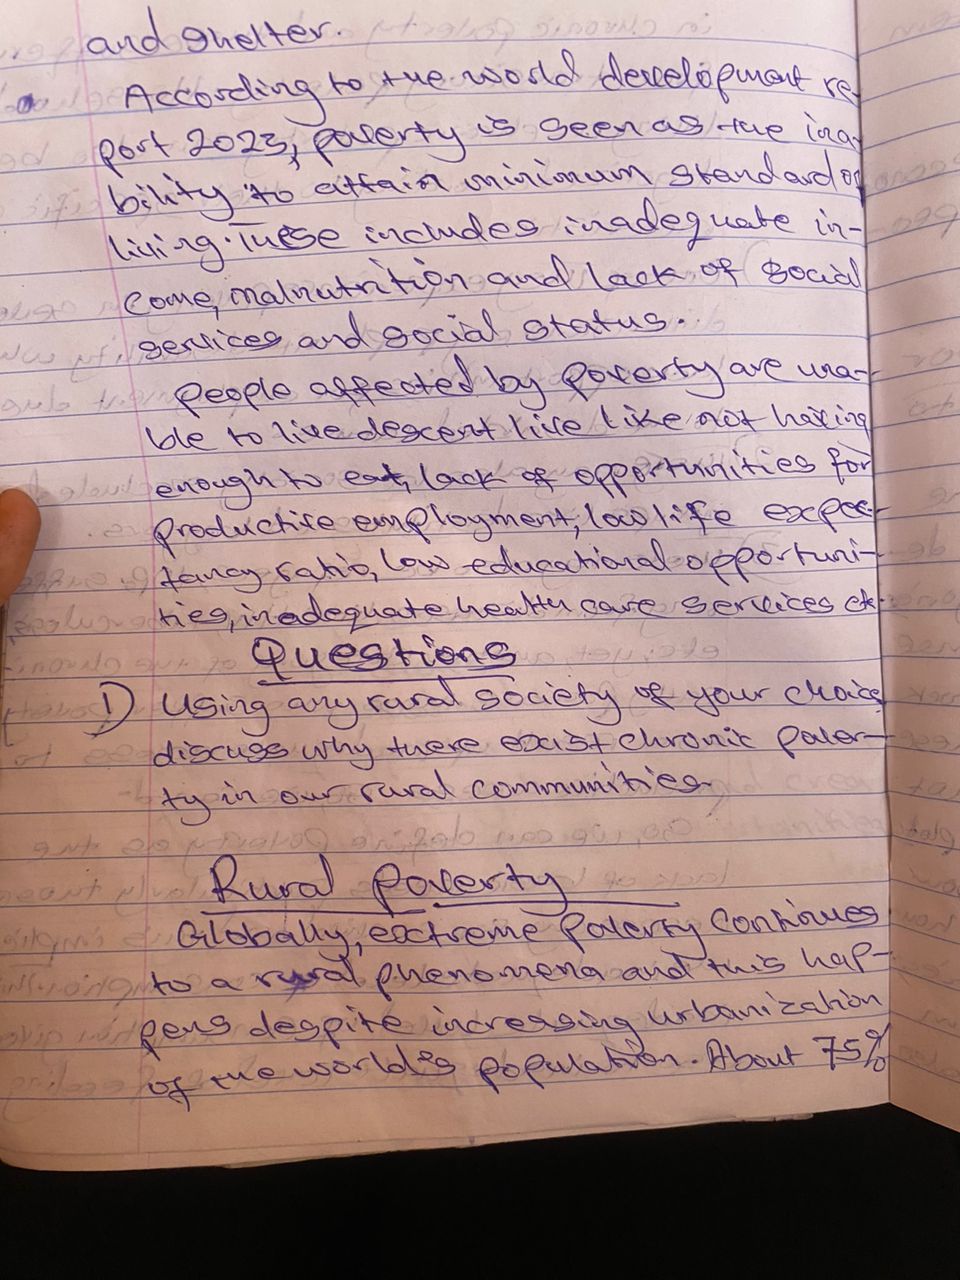 and shelter.
According to the world development re-
port 2023, poverty is seen as the ina-
bility to attain minimum standard of
living. These includes inadequate in-
come, malnutrition and lack of social
services and social status.
People affected by poverty are una-
ble to live descent live like not having
enough to eat, lack of opportunities for
productive employment, low life expec-
tancy ratio, low educational opportuni-
ties, inadequate health care services etc
Questions
1) Using any rural society of your choice
discuss why there exist chronic pover-
ty in our rural communities.
Rural Poverty
Globally, extreme Poverty Continues
to a rural phenomena and this hap-
pens despite increasing urbanization
of the world's population. About 75%